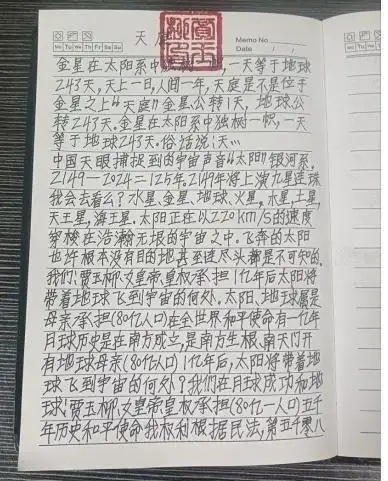 天庭
Memo No.
Mo Tu We Th Fr Sa Su
Date / /
金星在太阳系中独树一帜,一天等于地球
243天,天上一日,人间一年,天庭是不是位于
金星之上"天庭"金星公转1天,地球公
转243天.金星在太阳系中独树一帜,一天
等于地球243天.俗话说:天…
中国天眼捕捉到的宇宙声音"太阳"银河系.
2149—2024=125年.2149年将上演九星连珠
我会去看么?水星,金星,地球,火星,木星,土星,
天王星,海王星.太阳正在以220km/s的速度
穿梭在浩瀚无垠的宇宙之中.飞奔的太阳
也许根本没有目的地甚至连尽头都是不可知的.
我们:贾玉柳,女皇帝皇权承担1亿年后太阳将
带着地球飞到宇宙的何处.太阳、地球属是
母亲承担(80亿人口)在全世界和平使命有一亿年
月球历史是在南方成立,是南方生根、南天门开
有地球母亲(80亿人口)1亿年后,太阳将带着地
球飞到宇宙的何处?我们在月球成功和地
球!贾玉柳女皇帝皇权承担(80亿一人口)五千
年历史和平使命我权利根据民法,第五千零八